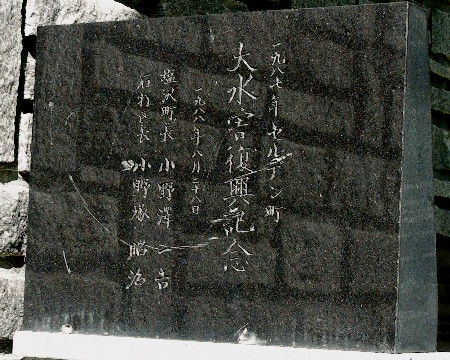 一九八七年 セルデン町
大水害復興記念
一九八八年八月二十八日
塩沢町長 小野澤 一吉
石打区長 小野塚 昭治